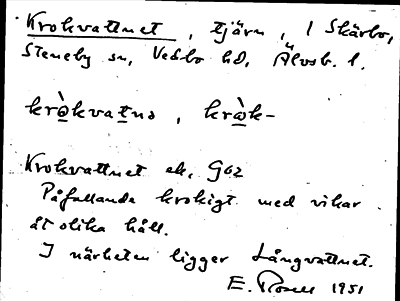 Krokvattnet, tjärn, i Skärbo,
Steneby sn, Vedbo hd, Älvsb. l.
krò̲kvat̲nə, krò̲k-
Krokvattnet ek. G62
Påfallande krokigt med vikar
åt olika håll.
I närheten ligger Långvattnet.
E. Rosell 1951